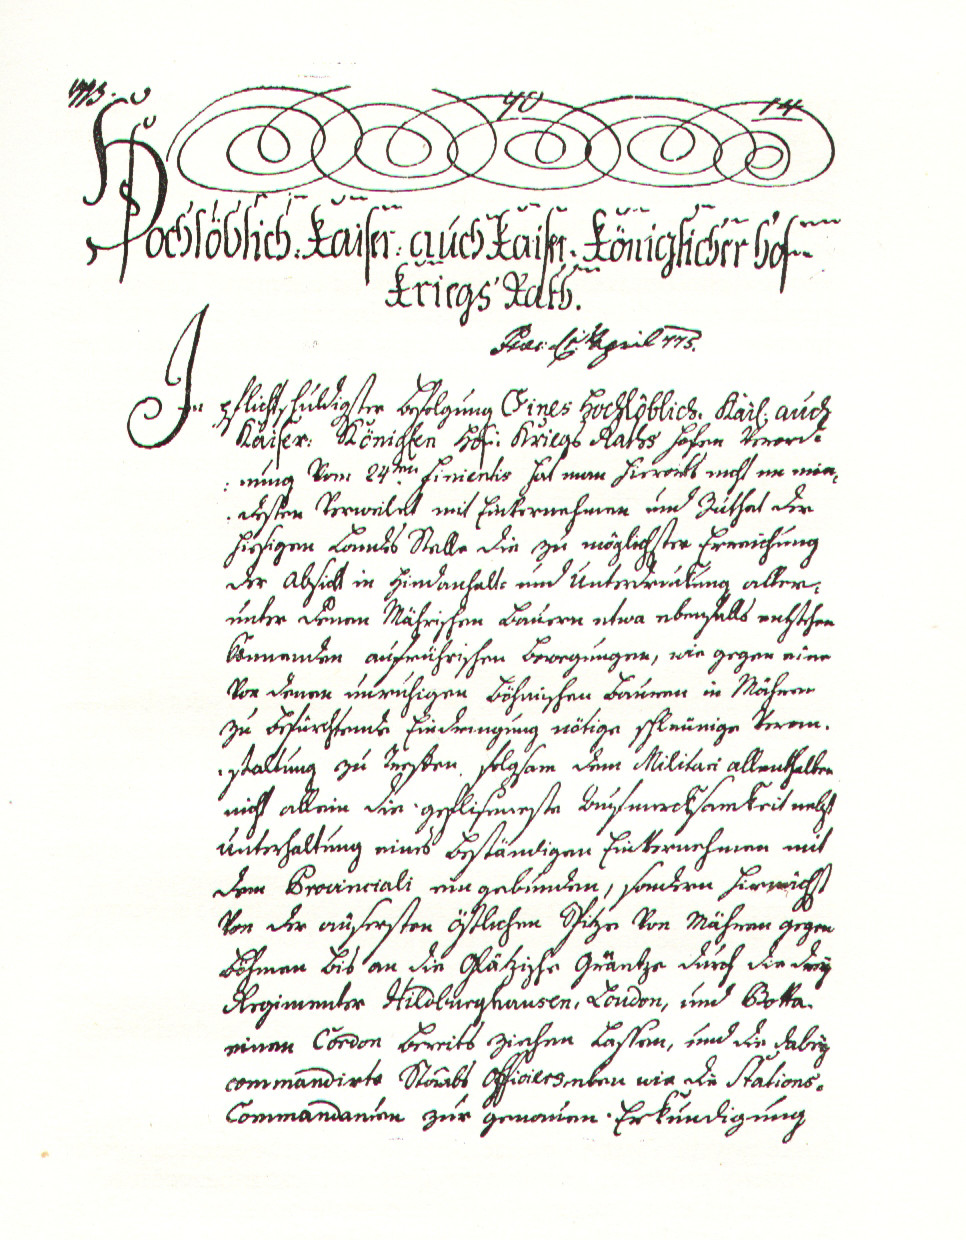 40 14
Hochlöblich: Kaiser: auch Kaiser: Königlicher Hof
Kriegs Rath.
April 775.
In pflichtschuldigster Befolgung Eines Hochlöblich: Kaisl: auch
Kaiser: Königlen Hof: Kriegs Raths hohen Verord¬
nung vom 24ten hat man hierorts nicht im min¬
desten verweilet mit Einvernehmen und Zuthat der
hiesigen Landes Stelle die zu möglichster Erreichung
der Absicht in Hindanhalt: und Unterdrückung aller¬
unter denen Mährischen Bauern etwa ebenfalls entstehen
könnenden aufrührischen Bewegungen, wie gegen eine
von denen unruhigen Böhmischen Bauren in Mähren
zu befürchtende Eindringung nötige schleünige Veran¬
staltung zu treffen, folgsam dem Militari allenthalben
nicht allein die geflissenste Aufmercksamkeit nebst
Unterhaltung eines beständigen Einvernehmen mit
dem Provinciali eingebunden, sondern hiernächst
von der äusersten östlichen Spitze von Mähren gegen
Böhmen bis an die Glätzische Gräntze durch die drey
Regimenter Hildburghausen, Loudon, und Botta
einen Cordon bereits ziehen lassen, und die dabey
commandirte Staabs Officiers eben wie die Stations¬
Commandanten zur genauen Erkundigung